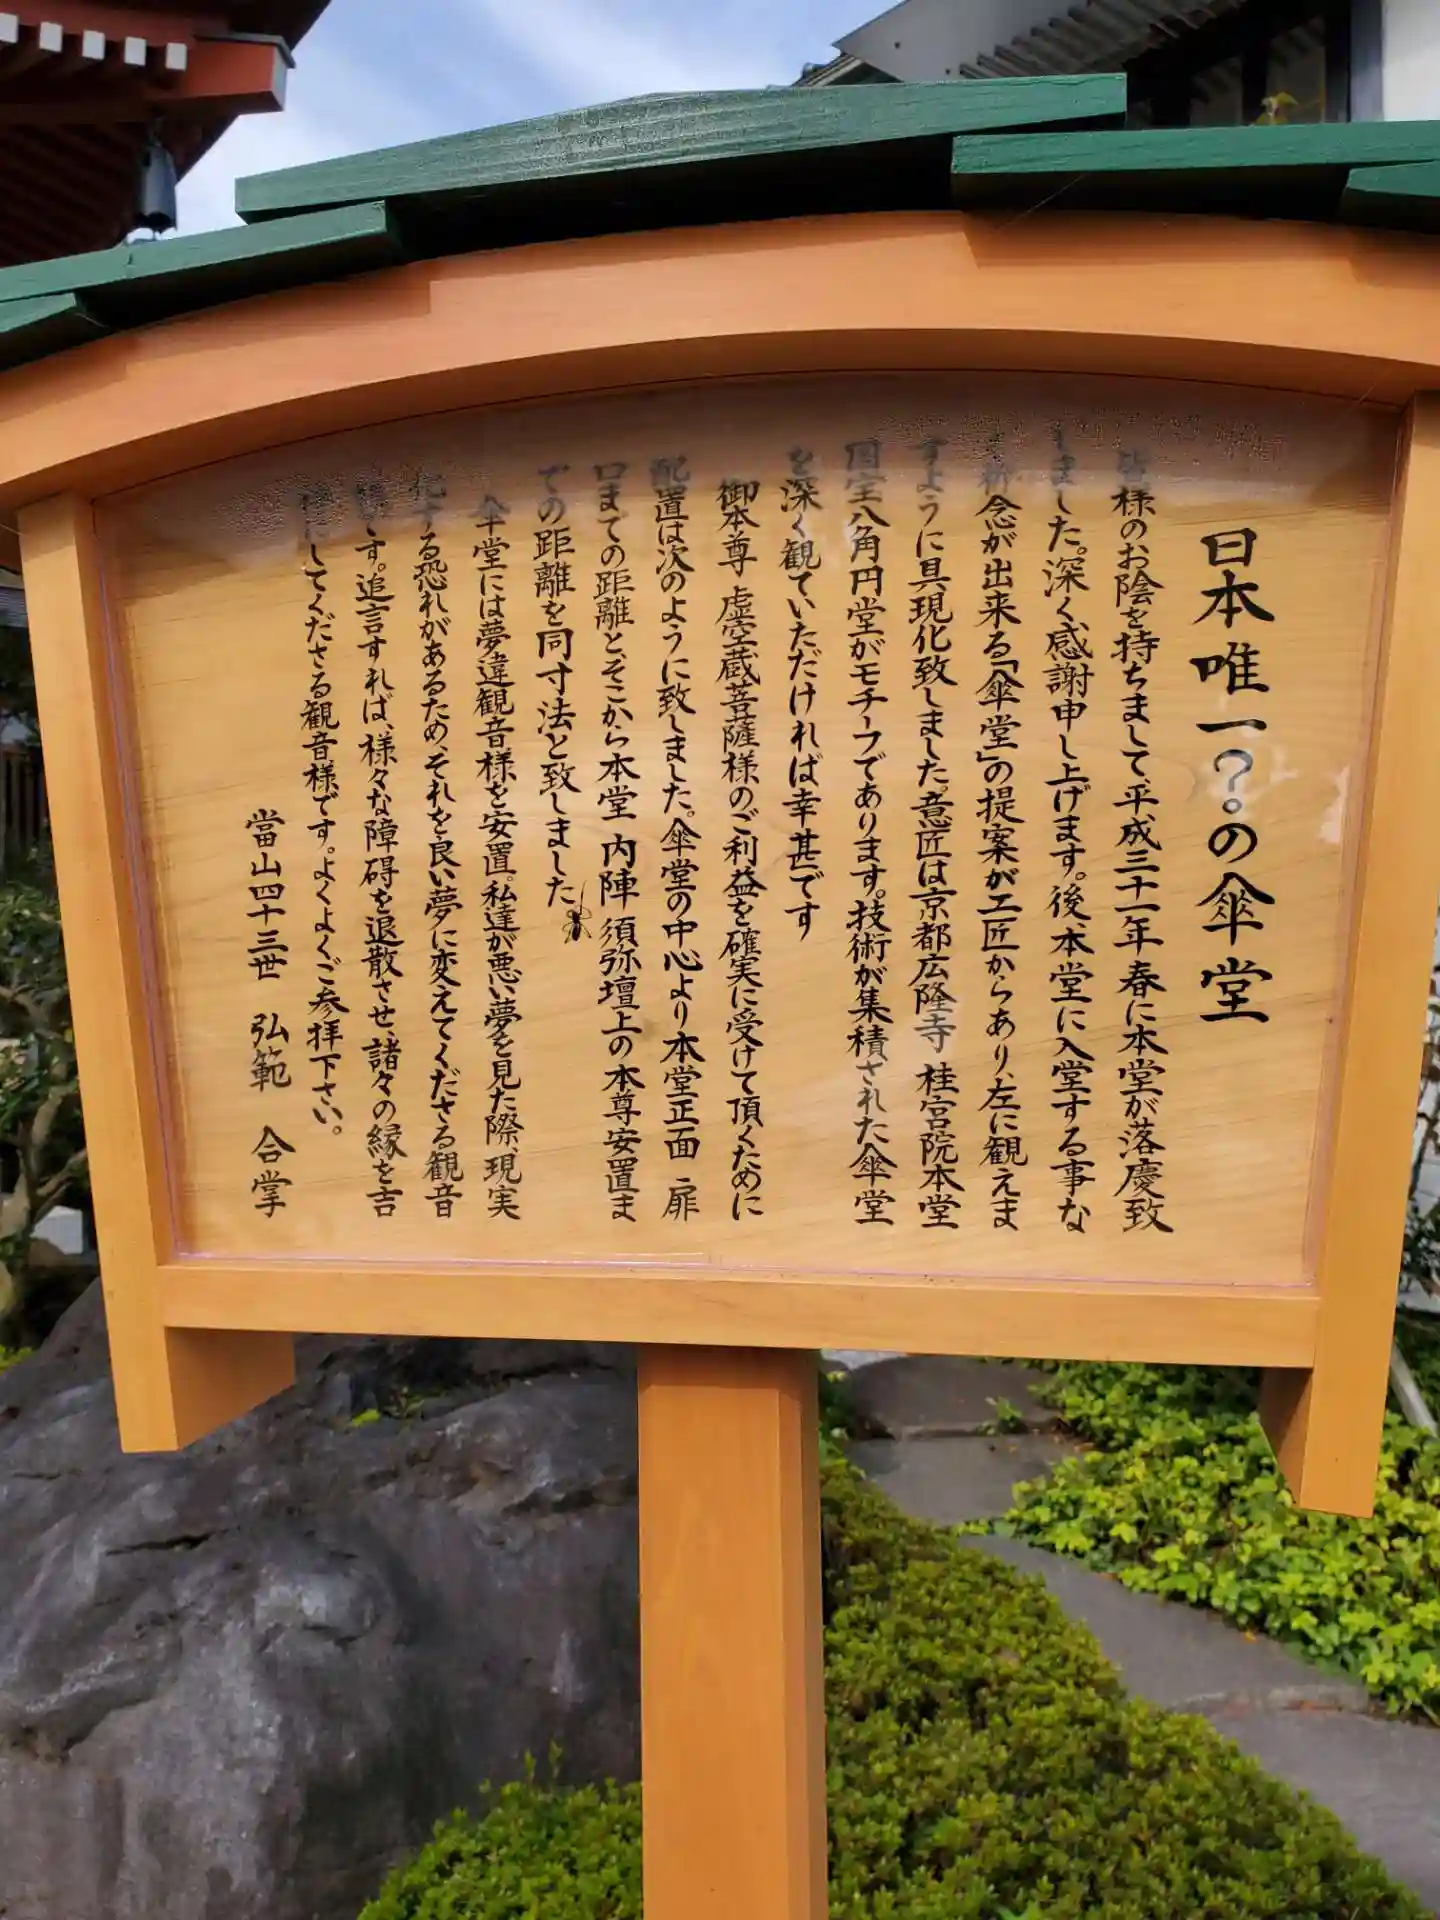 日本唯一?。の傘堂
皆様のお陰を持ちまして、平成三十一年春に本堂が落慶致
しました。深く感謝申し上げます。後、本堂に入堂する事な
く祈念が出来る「傘堂」の提案が工匠からあり、左に観えま
すように具現化致しました。意匠は京都広隆寺 桂宮院本堂
国宝八角円堂がモチーフであります。技術が集積された傘堂
を深く観ていただければ幸甚です
御本尊 虚空蔵菩薩様のご利益を確実に受けて頂くために
配置は次のように致しました。傘堂の中心より本堂正面 扉
口までの距離と、そこから本堂 内陣 須弥壇上の本尊安置ま
での距離を同寸法と致しました。
傘堂には夢違観音様を安置。私達が悪い夢を見た際、現実
化する恐れがあるため、それを良い夢に変えてくださる観音
様です。追言すれば、様々な障碍を退散させ、諸々の縁を吉
祥にしてくださる観音様です。よくよくご参拝下さい。
當山四十三世 弘範 合掌